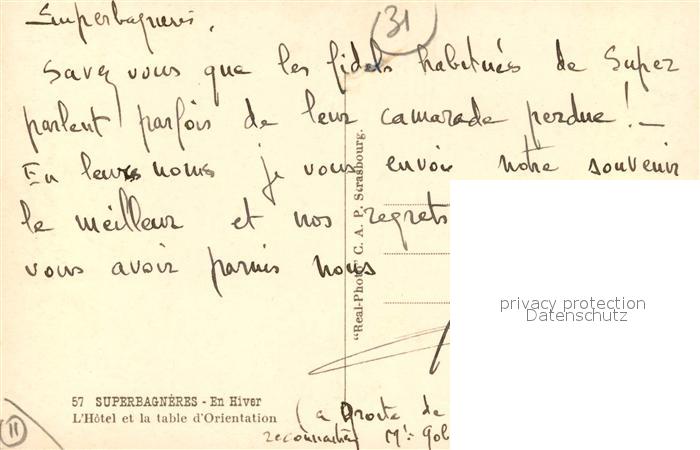 Superbagneres.
31
Savez vous que les fidels habitués de Super
parlent parfois de leur camarade perdue! _
En leurs noms je vous envoie notre souvenir
le meilleur et nos regrets
vous avoir parmis nous
"Real-Photo" C. A. P. Strasbourg.
privacy protection
Datenschutz
57 SUPERBAGNÈRES - En Hiver
L'Hôtel et la table d'Orientation
(a Droite de
Mr Gob
11